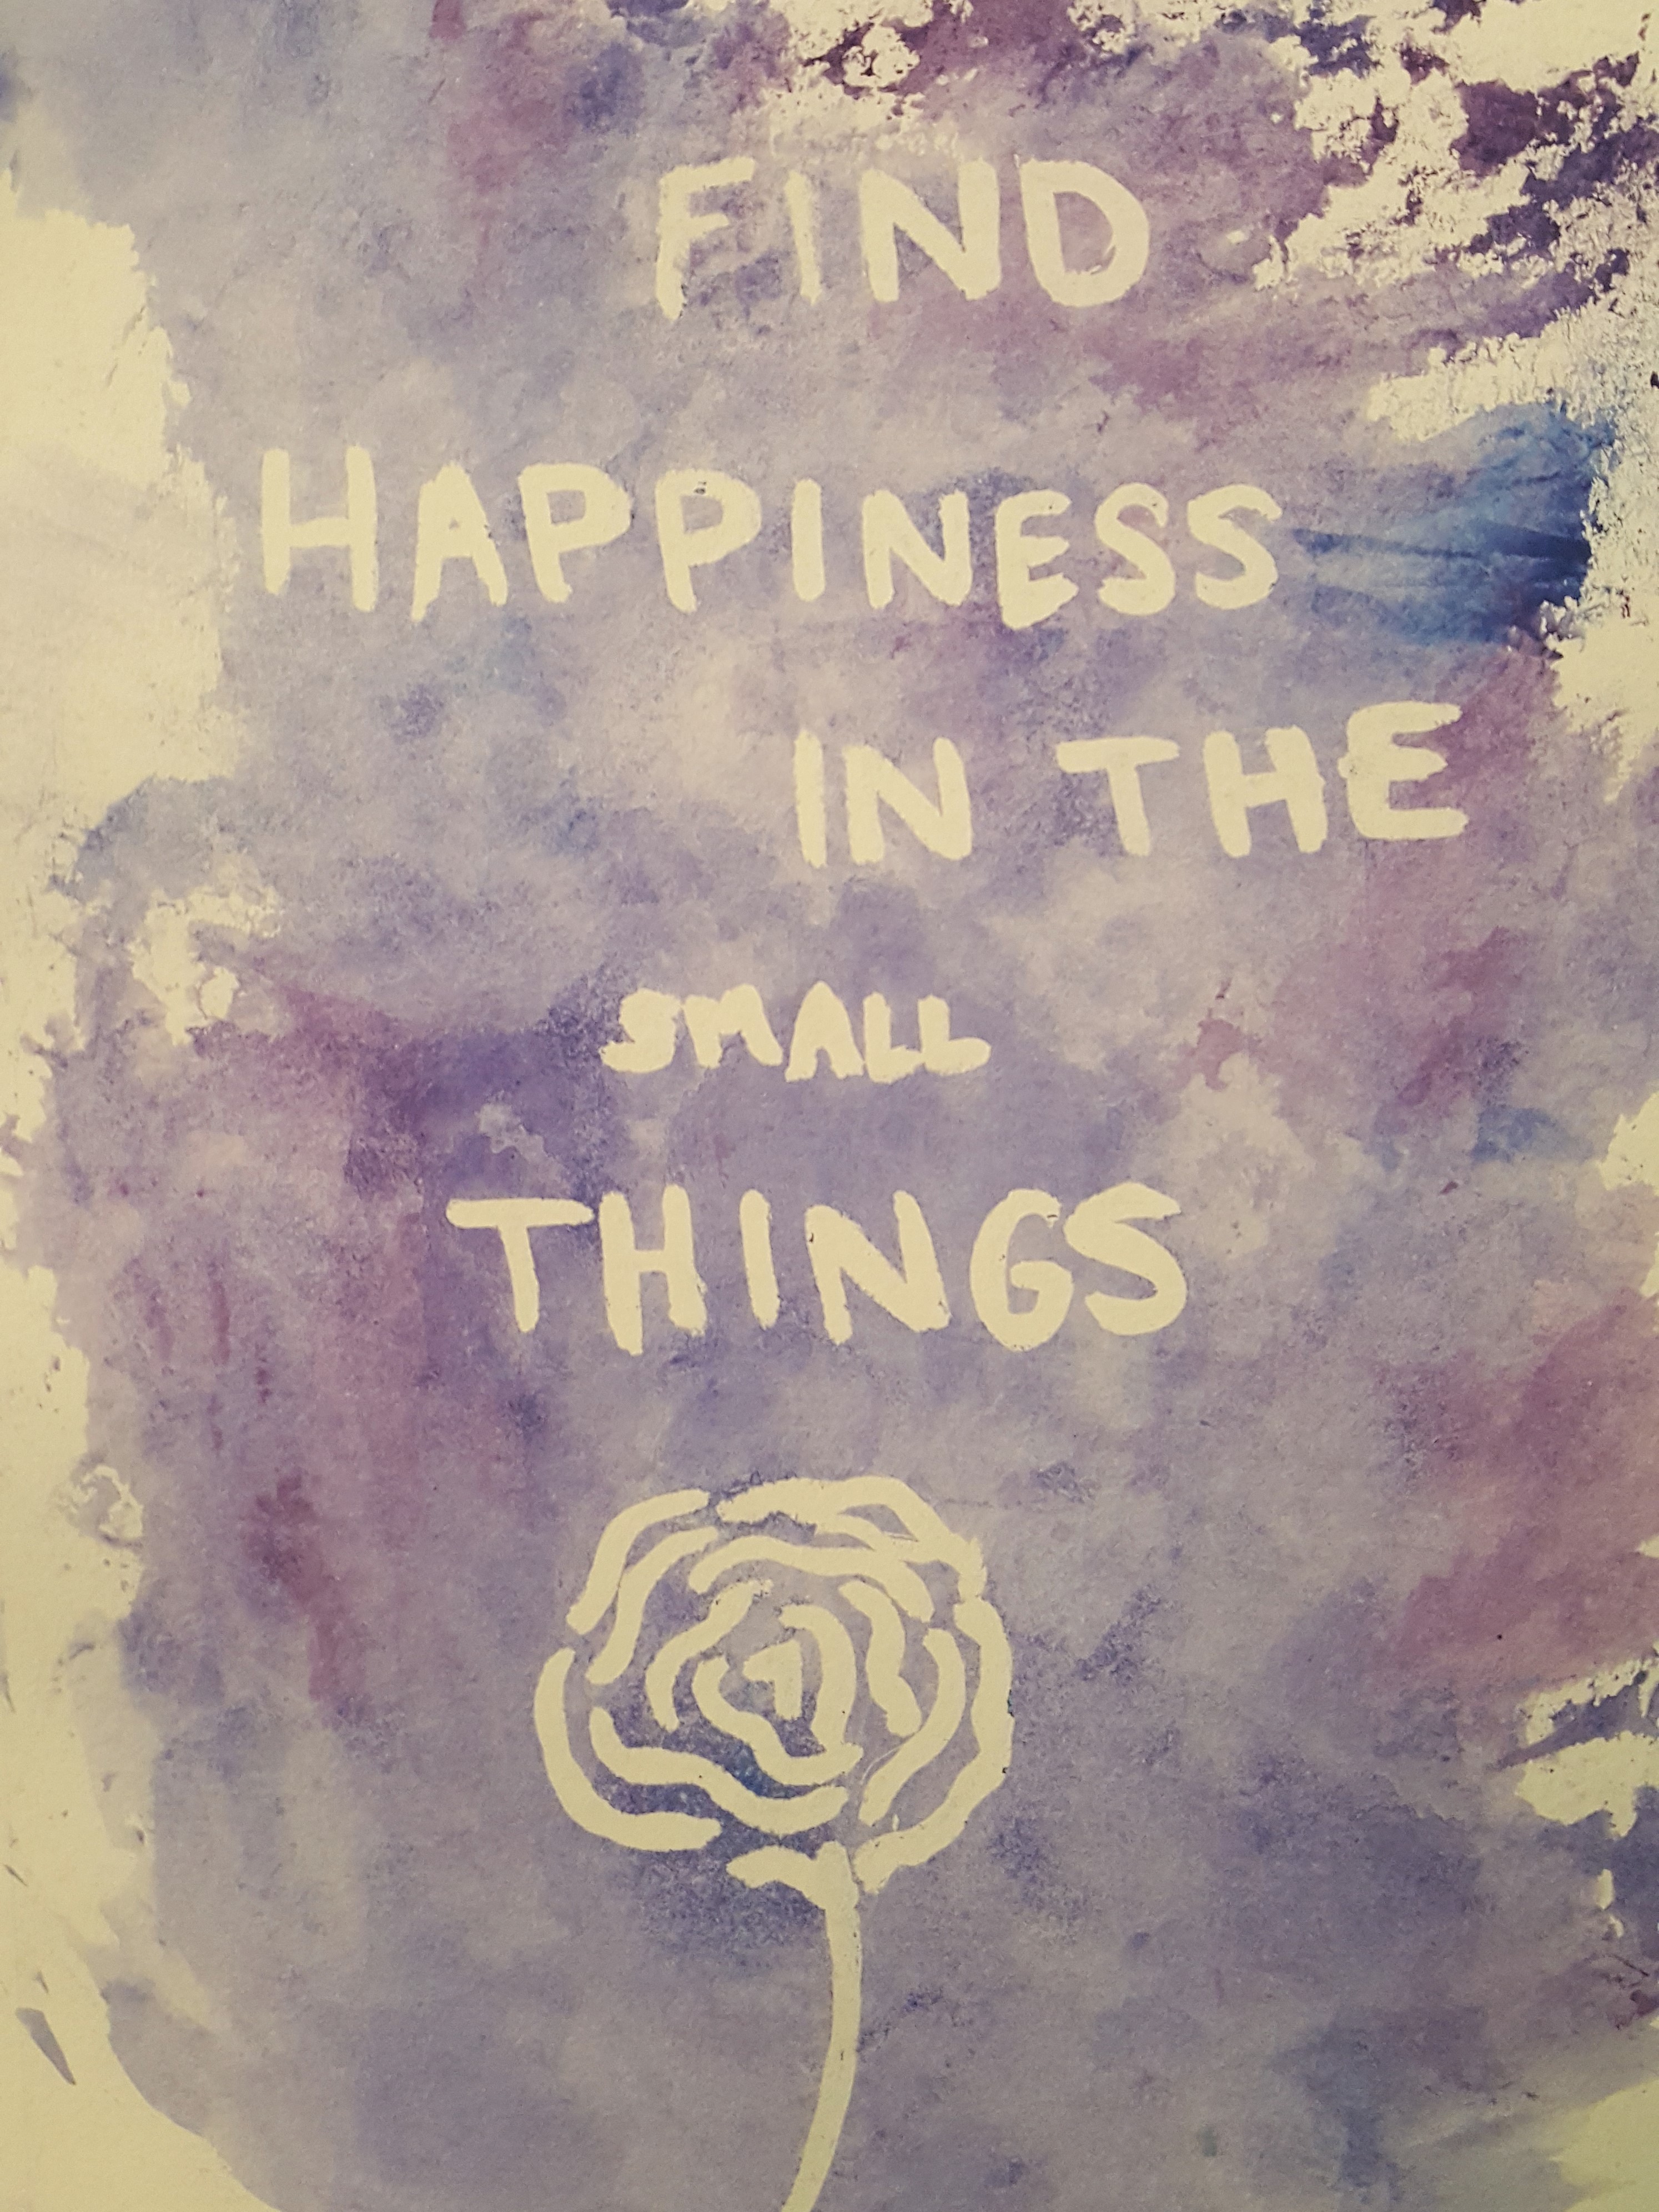 FIND
HAPPINESS
IN THE
SMALL
THINGS